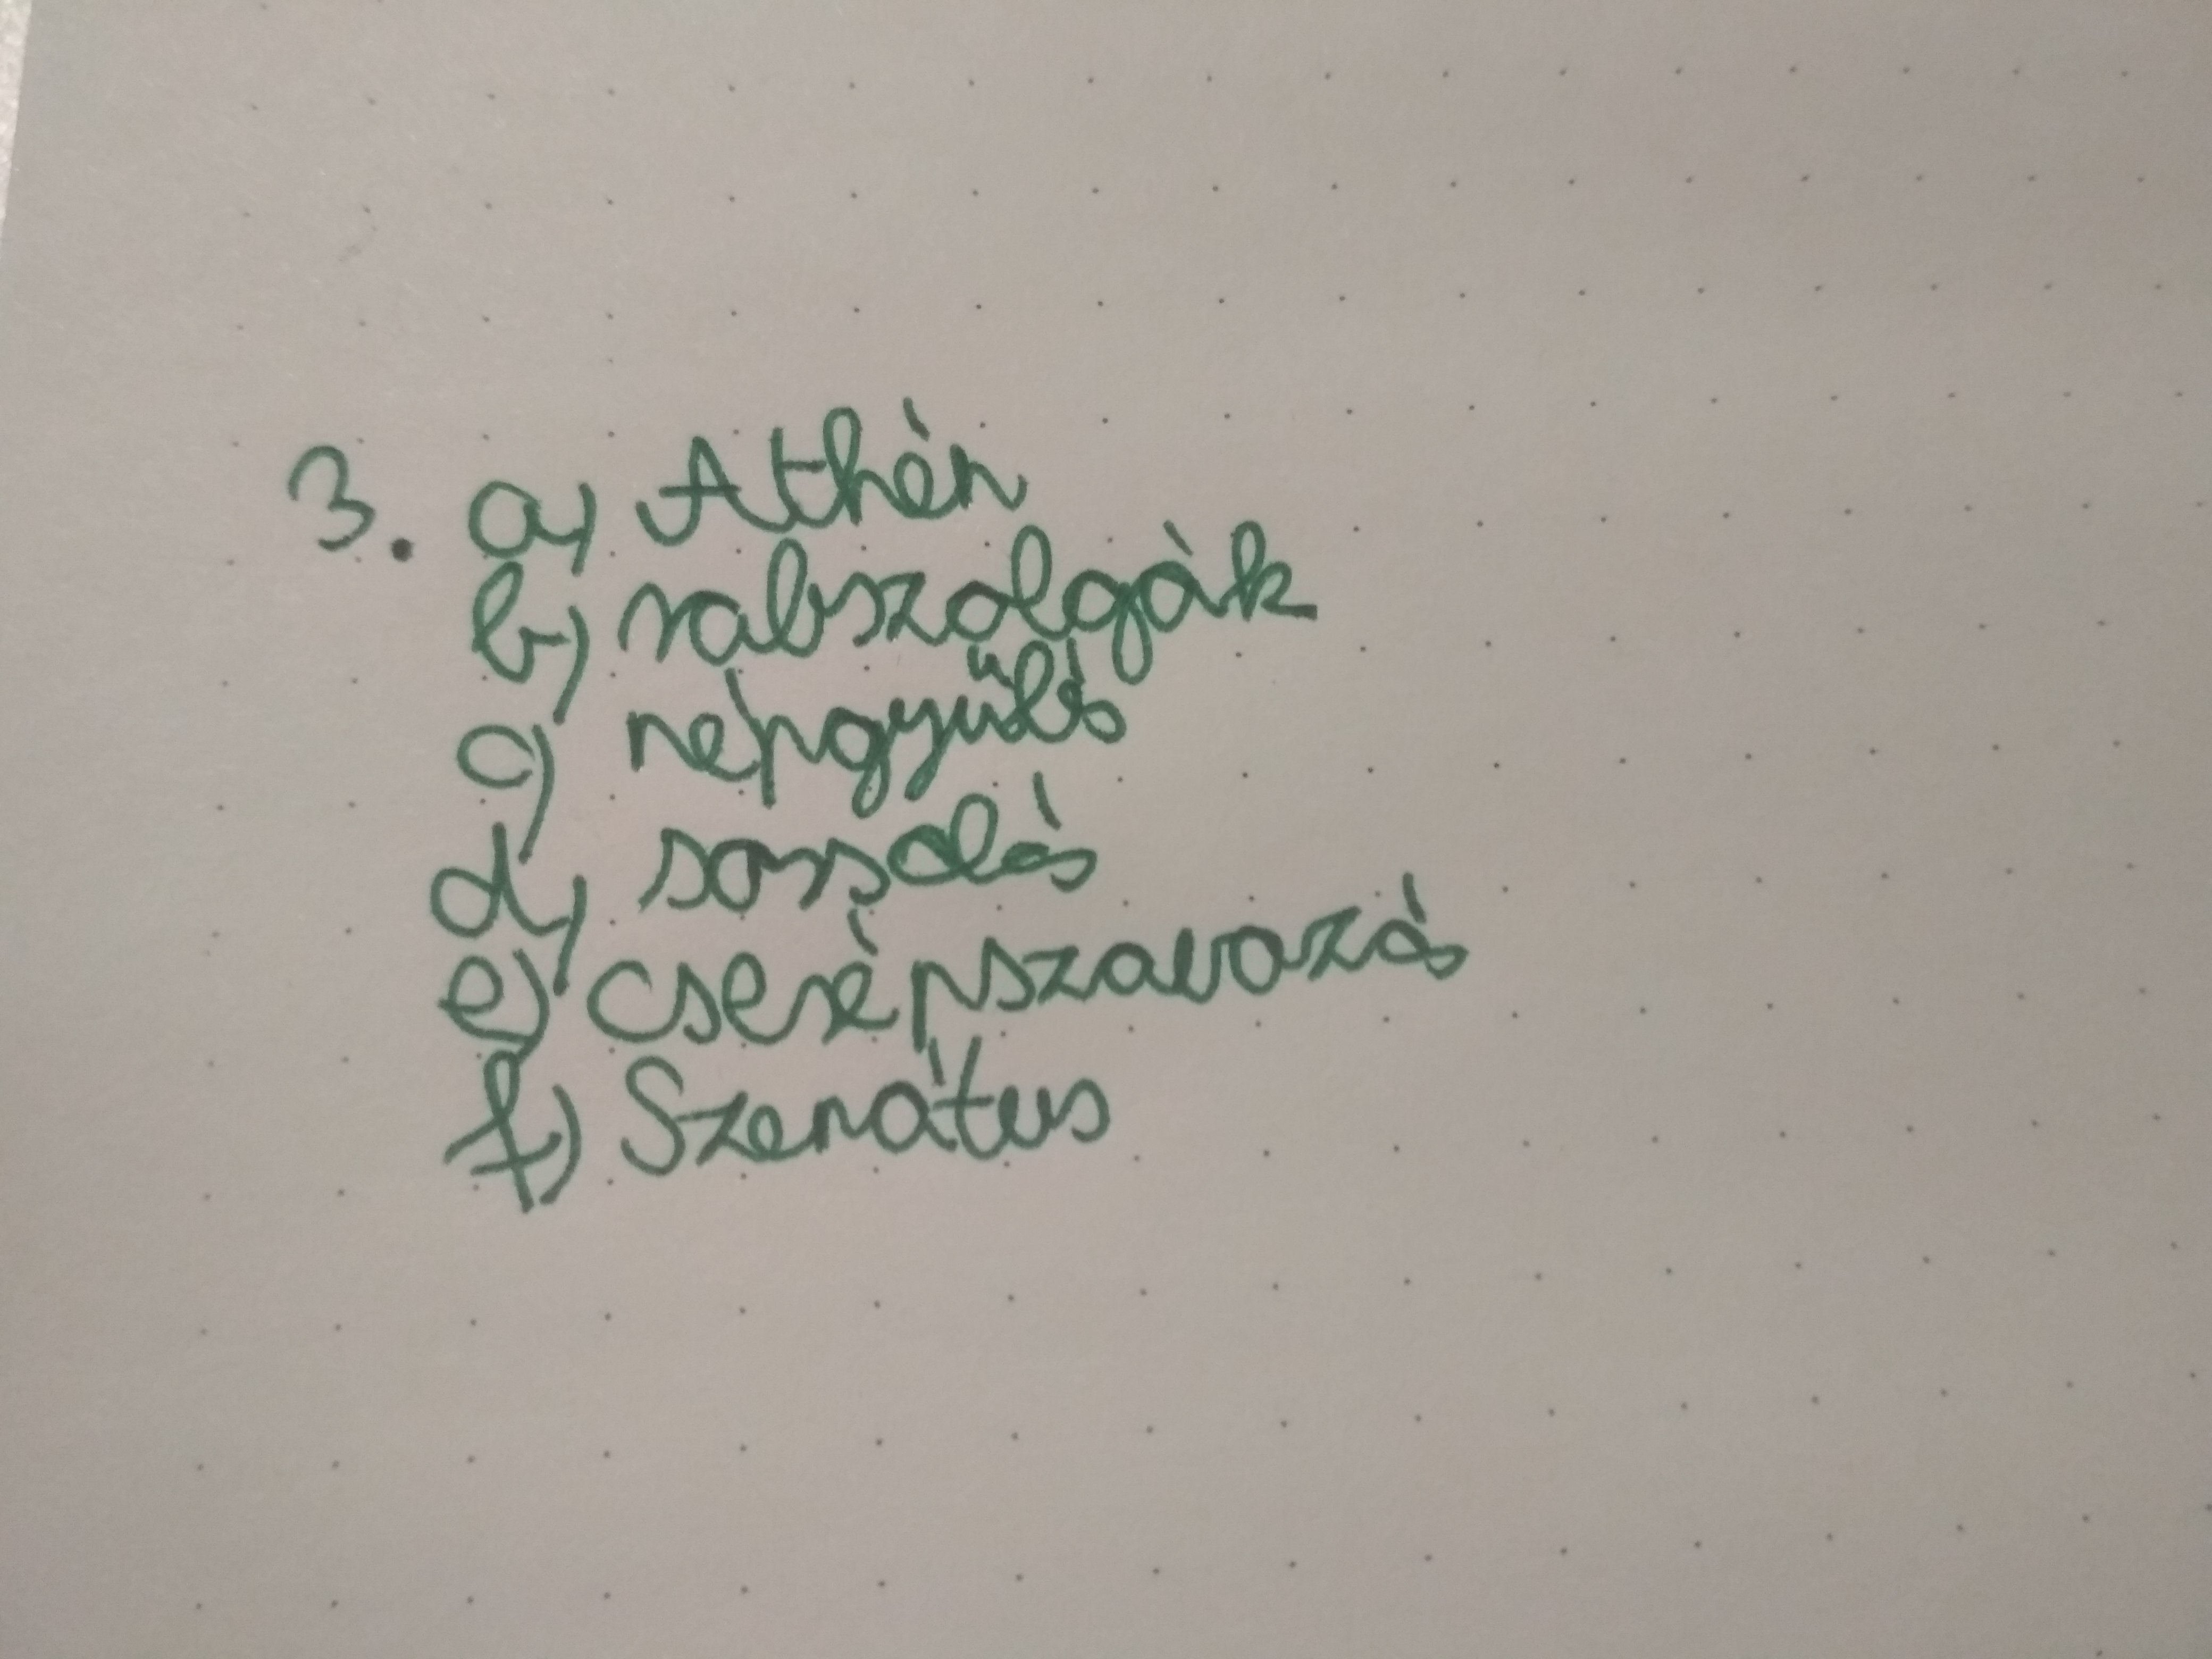 3. a) Athén
b) rabszolgák
c) népgyűlés
d) sorsolás
e) cserépszavazás
f) Szenátus